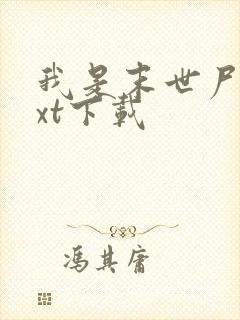 我是末世尸
xt下载
冯其庸